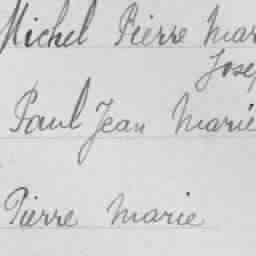 Michel Pierre Mar
Jose
Paul Jean Marie
Pierre Marie